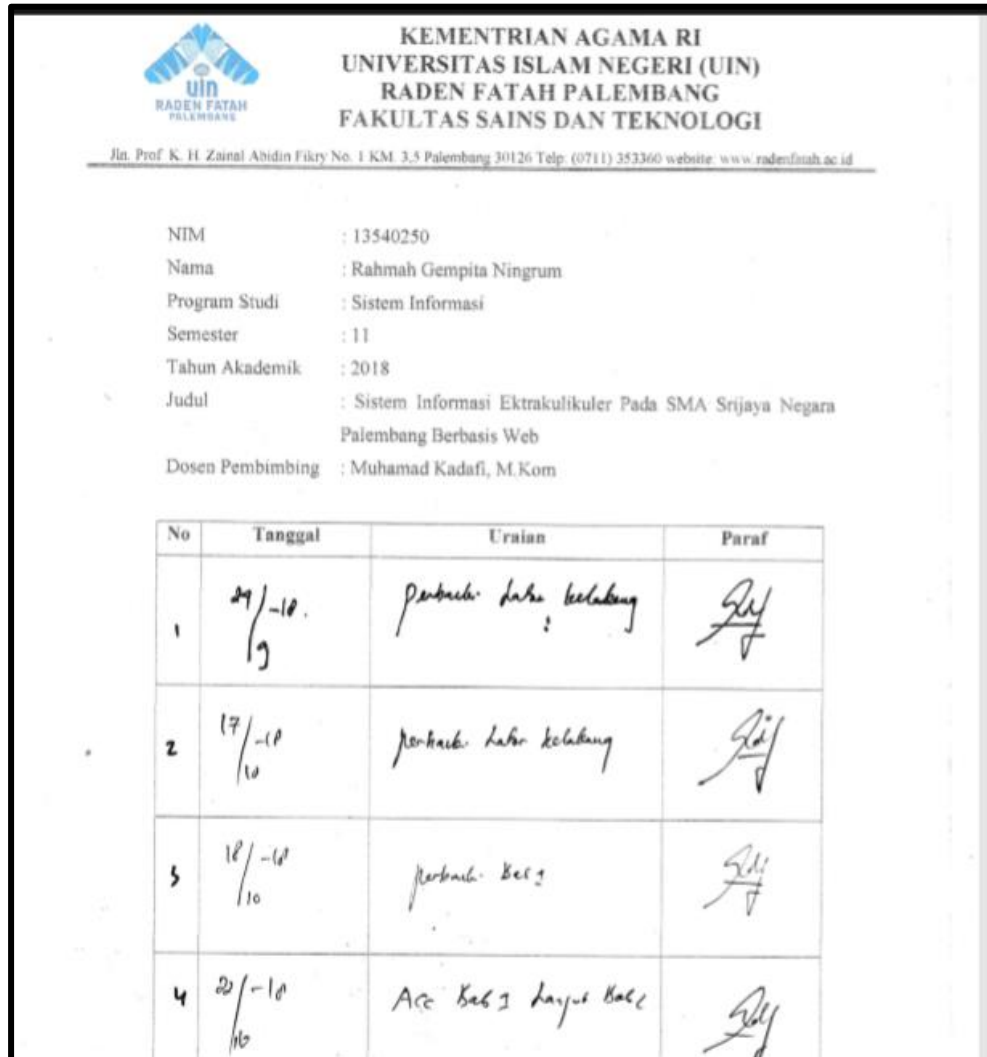 uin
RADEN FATAH
PALEMBANG
KEMENTRIAN AGAMA RI
UNIVERSITAS ISLAM NEGERI (UIN)
RADEN FATAH PALEMBANG
FAKULTAS SAINS DAN TEKNOLOGI
Jln. Prof. K. H. Zainal Abidin Fikry No. 1 KM. 3,5 Palembang 30126 Telp. (0711) 353360 website: www.radenfatah.ac.id
NIM : 13540250
Nama : Rahmah Gempita Ningrum
Program Studi : Sistem Informasi
Semester : 11
Tahun Akademik : 2018
Judul : Sistem Informasi Ektrakulikuler Pada SMA Srijaya Negara
Palembang Berbasis Web
Dosen Pembimbing : Muhamad Kadafi, M.Kom
No Tanggal Uraian Paraf
1 /9 -18. Latar belakang
2 17/10 -18 Latar belakang
3 18/10 -18 Bab 1
4 /10 -18 Acc Bab 1 Lanjut Bab